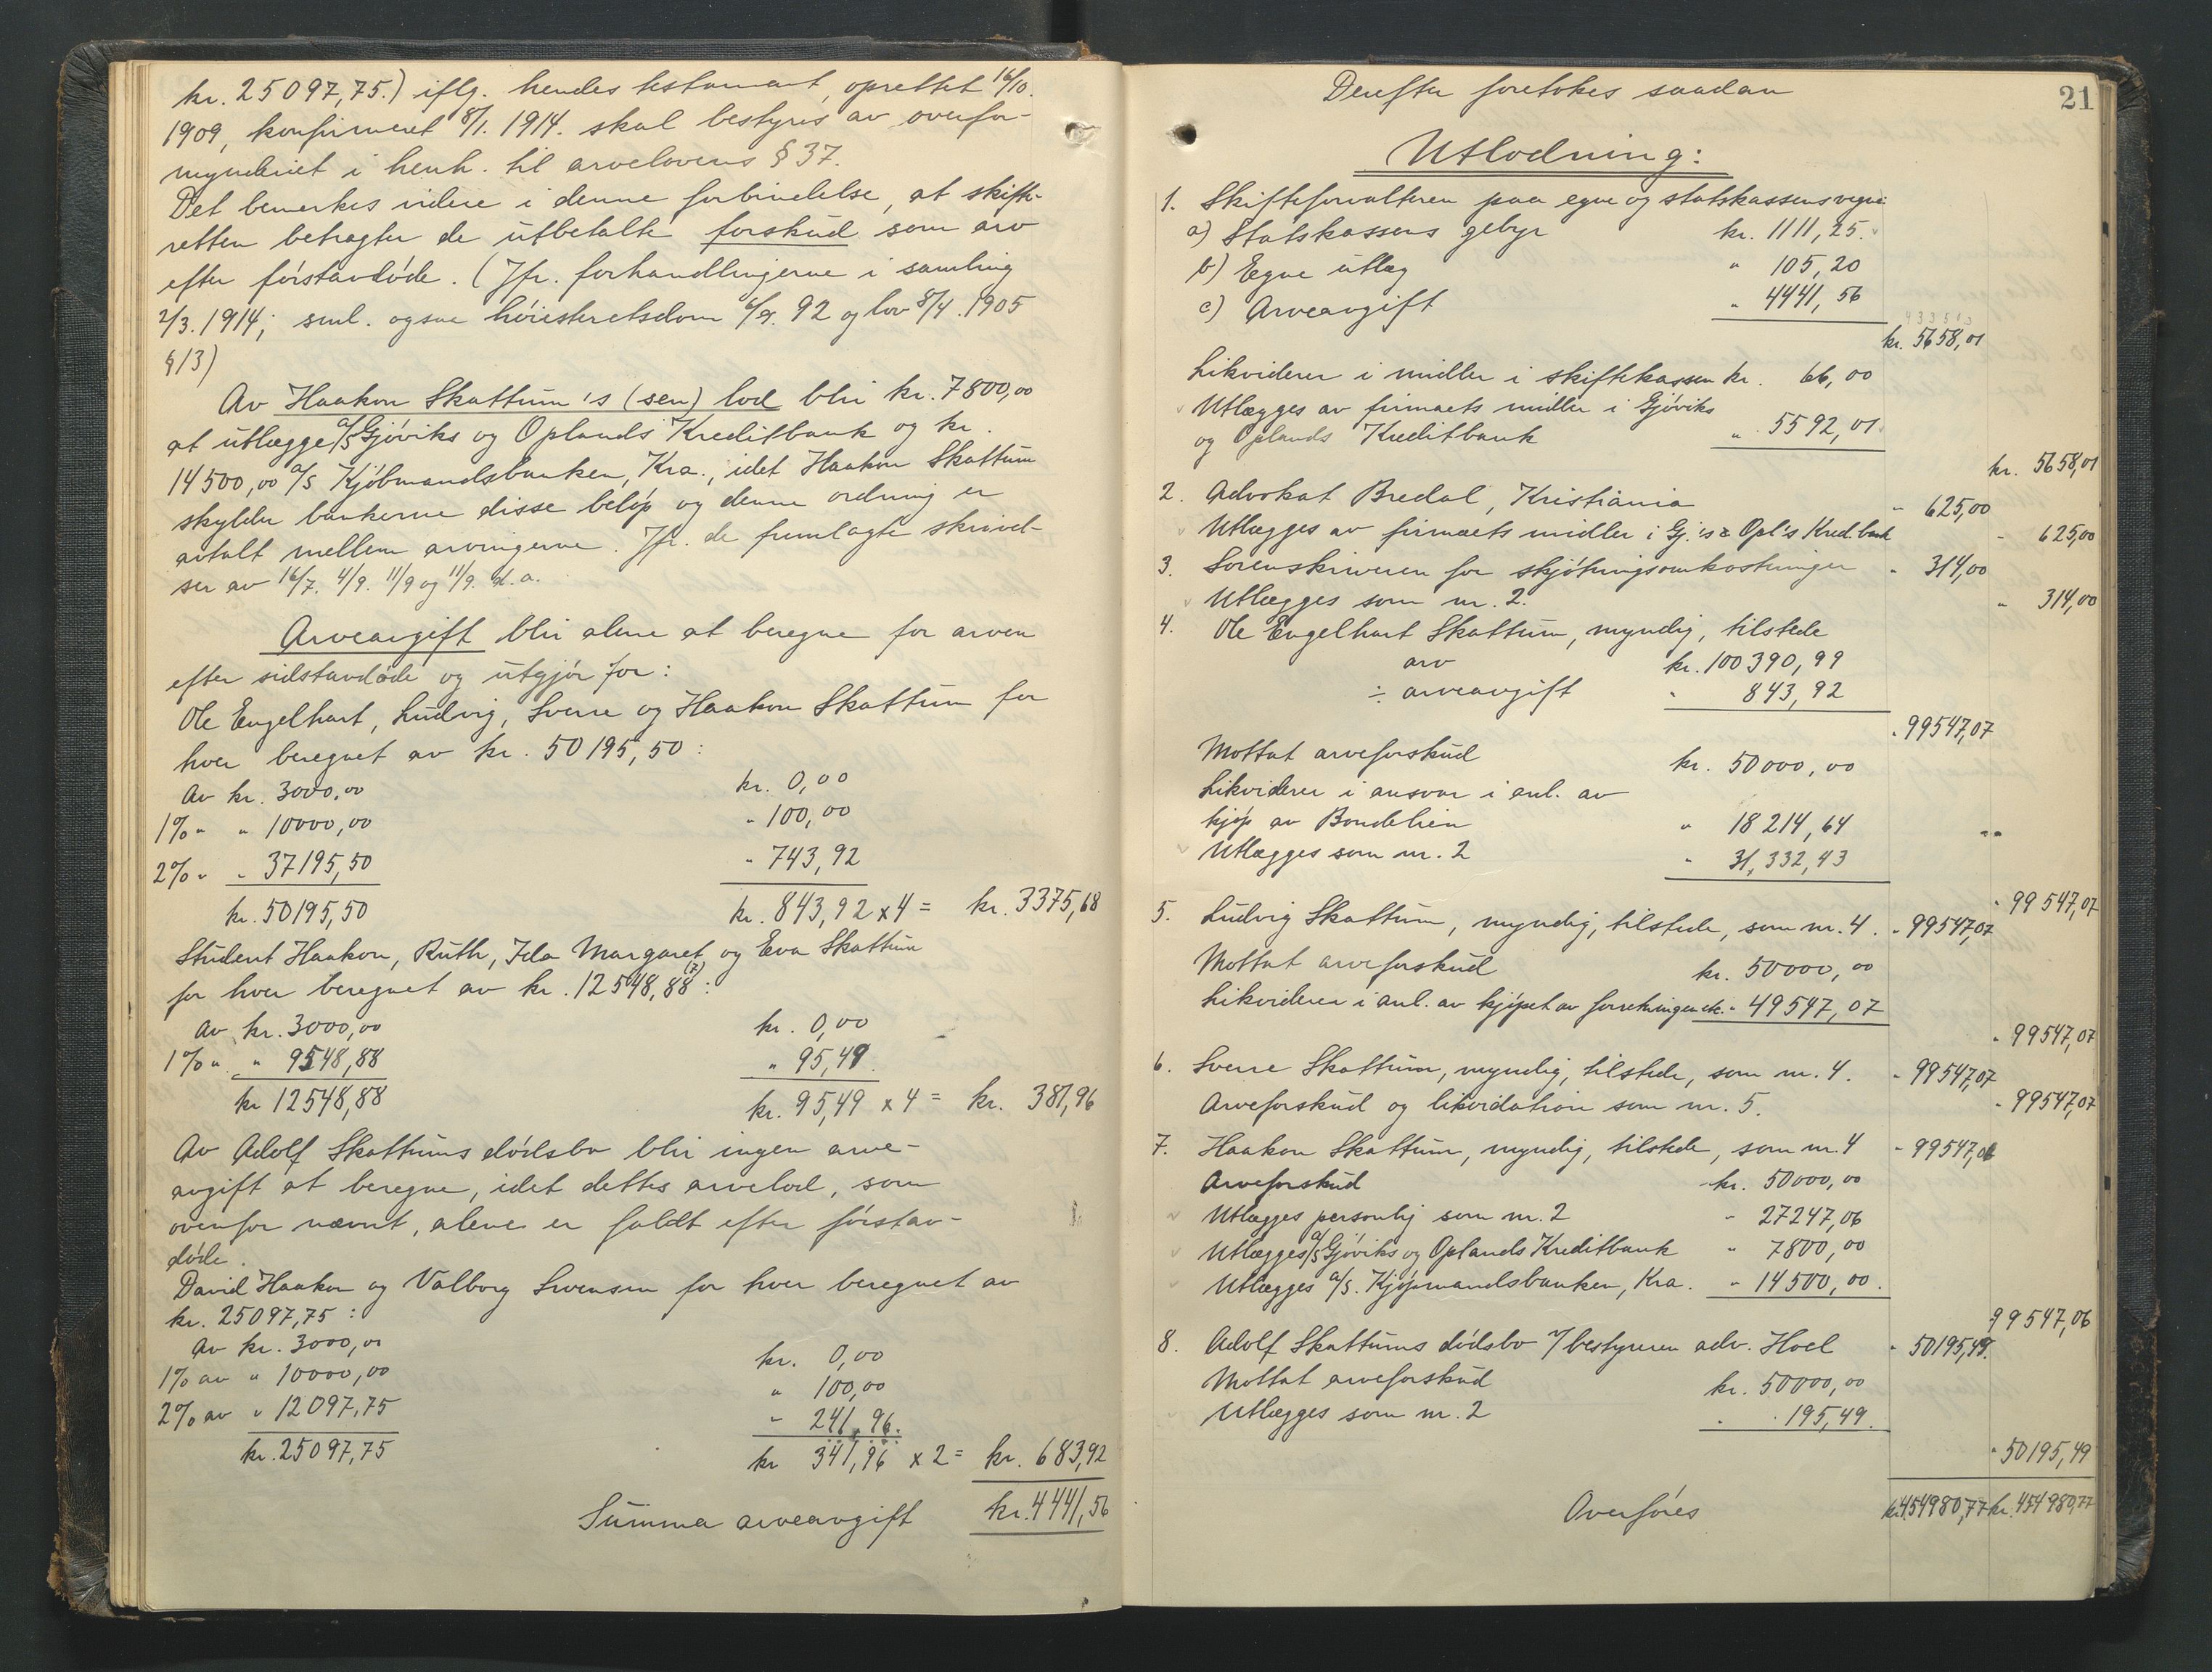 kr. 25097,75.) iflg. hendes testament, oprettet 16/10.
1909, konfirmeret 8/1. 1914. skal bestyres av overfor-
mynderiet i henh. til arvelovens § 37.
Det bemerkes videre i denne forbindelse, at skifte-
retten betragter de utbetalte forskud som arv
efter førstavdøde. (Jfr. forhandlingerne i samling
2/3. 1914; sml. ogsaa høiesteretsdom 92 og lov 8/4. 1905
§ 13)
Av Haakon Skattum's (sen) lod blir kr. 7800,00
at utlægge A/S Gjøviks og Oplands Kreditbank og kr.
14500,00 A/S Kjøbmandsbanken, Kra., idet Haakon Skattum
skylder bankerne disse beløp og denne ordning er
avtalt mellem arvingerne. Jfr. de fremlagte skrivel-
ser av 16/7. 4/9. 11/9 og 11/9. d.a.
Arveavgift blir alene at beregne for arven
efter sidstavdøde og utgjør for:
Ole Engelhart, Ludvig, Sverre og Haakon Skattum for
hver beregnet av kr. 50195,50:
Av kr. 3000,00 kr. 0,00
1% " " 10000,00 " 100,00
2% " " 37195,50 " 743,92
kr. 50195,50 kr. 843,92 x 4 = kr. 3375,68
Student Haakon, Ruth, Ida Margaret og Eva Skattum
for hver beregnet av kr. 12548,88 (7):
Av kr. 3000,00 kr. 0,00
1% " " 9548,88 " 95,49
kr 12548,88 kr. 95,49 x 4 = kr. 381,96
Av Adolf Skattums dødsbo blir ingen arve-
avgift at beregne, idet dettes arvelod, som
ovenfor nævnt, alene er faldt efter førstav-
døde.
David Haakon og Valborg Svensen for hver beregnet av
kr. 25097,75:
Av kr. 3000,00 kr. 0,00
1% av " 10000,00 " 100,00
2% av " 12097,75 " 241,96.
kr. 25097,75 kr 341,96 x 2 = kr. 683,92
Summa arveavgift kr. 4441,56
21
Derefter foretokes saadan
Utlodning:
1. Skifteforvalteren paa egne og statskassens vegne:
a) Statskassens gebyr kr. 1111,25.
b) Egne utlæg " 105,20
c) Arveavgift " 4441,56
kr. 5658,01
Likviderer i midler i skiftekassen kr. 66,00
Utlægges av firmaets midler i Gjøviks
og Oplands Kreditbank " 5592,01
kr. 5658,01
2. Advokat Bredal, Kristiania " 625,00
Utlægges av firmaets midler i Gj.'s & Opl's Kred.bank " 625,00
3. Sorenskriveren for skjøtningsomkostninger " 314,00
Utlægges som nr. 2. " 314,00
4. Ole Engelhart Skattum, myndig, tilstede
arv kr. 100390,99
÷ arveavgift " 843,92
" 99547,07
Mottat arveforskud kr. 50000,00
Likviderer i ansvar i anl. av
kjøp av Bondelien " 18214,64
Utlægges som nr. 2 " 31,332,43
" 99547,07
5. Ludvig Skattum, myndig, tilstede, som nr. 4. " 99547,07
Mottat arveforskud kr. 50000,00
Likviderer i anl. av kjøpet av forretningen etc. " 49547,07
" 99547,07
6. Sverre Skattum, myndig, tilstede, som nr. 4. " 99547,07
Arveforskud og likvidation som nr. 5. " 99547,07
7. Haakon Skattum, myndig, tilstede, som nr. 4 " 99547,06
Arveforskud kr. 50000,00
Utlægges personlig som nr. 2 " 27247,06
Utlægges A/S Gjøviks og Oplands Kreditbank " 7800,00
Utlægges A/S. Kjøpmandsbanken, Kra. " 14500,00.
99547,06
8. Adolf Skattums dødsbo v/bestyreren adv. Hoel " 50195,49.
Mottat arveforskud kr. 50000,00
Utlægges som nr. 2 " 195,49.
" 50195,49
Overføres kr. 454980,77 kr. 454980,77